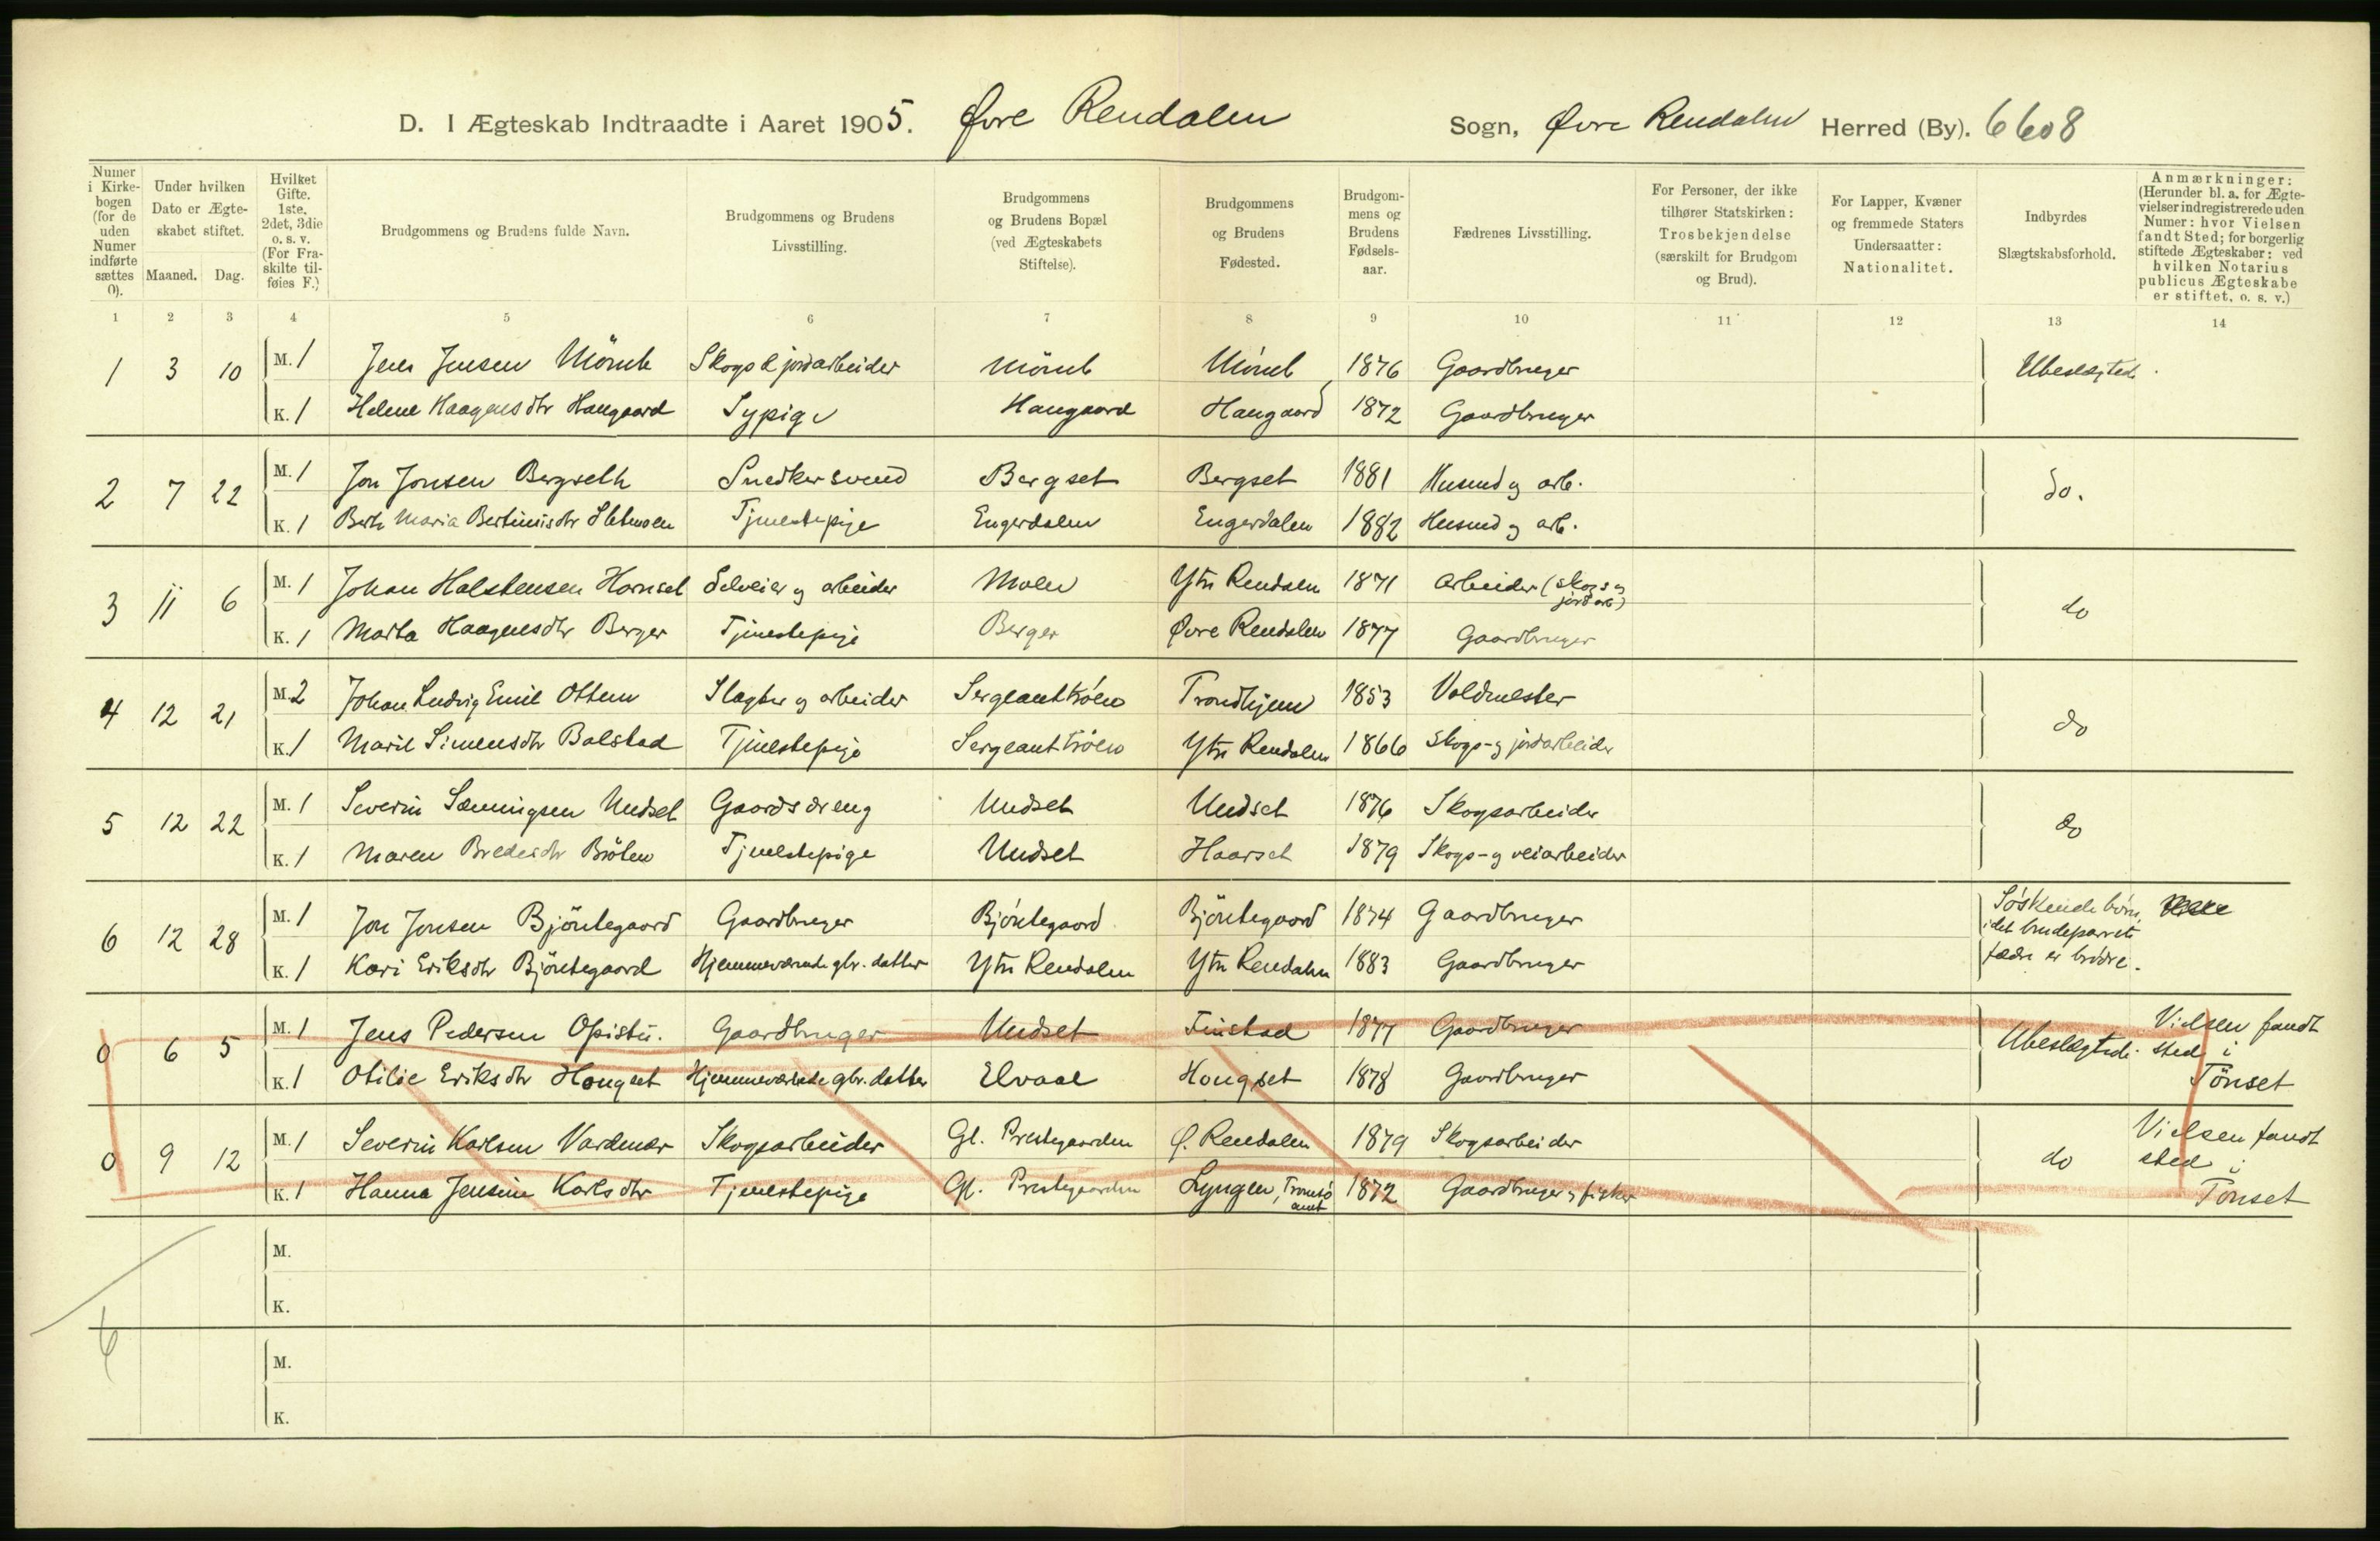 D. I Ægteskab Indtraadte i Aaret 1905. Øvre Rendalen Sogn, Øvre Rendalen Herred (By). 6608
Numer i Kirkebogen (for de uden Numer indførte sættes 0).
Under hvilken Dato er Ægteskabet stiftet.
Maaned. Dag.
Hvilket Gifte. 1ste, 2det, 3die o. s. v. (For Fraskilte tilføies F.)
Brudgommens og Brudens fulde Navn.
Brudgommens og Brudens Livsstilling.
Brudgommens og Brudens Bopæl (ved Ægteskabets Stiftelse).
Brudgommens og Brudens Fødested.
Brudgommens og Brudens Fødselsaar.
Fædrenes Livsstilling.
For Personer, der ikke tilhører Statskirken: Trosbekjendelse (særskilt for Brudgom og Brud).
For Lapper, Kvæner og fremmede Staters Undersaatter: Nationalitet.
Indbyrdes Slægtskabsforhold.
Anmærkninger: (Herunder bl. a. for Ægtevielser indregistrerede uden Numer: hvor Vielsen fandt Sted; for borgerlig stiftede Ægteskaber: ved hvilken Notarius publicus Ægteskabe er stiftet, o. s. v.)
1 2 3 4 5 6 7 8 9 10 11 12 13 14
1 3 10 M. 1 Jens Jensen Mömb Skogs & jordarbeider Mömb Mömb 1876 Gaardbruger Ubeslægtede.
K. 1 Helene Haagensdtr Haugaard Sypige Haugaard Haugaard 1872 Gaardbruger
2 7 22 M. 1 Jon Jonsen Bergseth Snedkersvend Bergset Bergset 1881 Husmd og arb. do.
K. 1 Maria Tjenestepige Engerdalen Engerdalen 1882 Husmd og arb.
3 11 6 M. 1 Johan Halstensen Hornset Selveier og arbeider Moen Ytre Rendalen 1871 Arbeider (skogs og jordarb) do
K. 1 Marta Haagensdtr Berger Tjenestepige Berger Øvre Rendalen 1877 Gaardbruger
4 12 21 M. 2 Johan Ludvig Emil Ottem Slagter og arbeider Sergeanttröen Trondhjem 1853 Voldmester do
K. 1 Marit Simensdtr Balstad Tjenestepige Sergeanttröen Ytre Rendalen 1866 Skogs- og jordarbeider
5 12 22 M. 1 Severin Undset Gaardsdreng Undset Undset 1876 Skogsarbeider do
K. 1 Maren Bredesdtr Bröten Tjenestepige Undset Haarset 1879 Skogs- og veiarbeider
6 12 28 M. 1 Jon Jonsen Bjöntegaard Gaardbruger Bjöntegaard Bjöntegaard 1874 Gaardbruger Söskendebörn, idet brudeparrets fædre er brödre.
K. 1 Kari Eriksdtr Bjöntegaard Hjemmeværende gbr. datter Ytre Rendalen Ytre Rendalen 1883 Gaardbruger
0 6 5 M. 1 Jens Pedersen Opistu. Gaardbruger Undset Finstad 1877 Gaardbruger Ubeslægtede. Vielsen fandt sted i Tönset
K. 1 Otilie Eriksdtr Hongset Hjemmeværende gbr. datter Elvaal Hongset 1878 Gaardbruger
0 9 12 M. 1 Severin Karlsen Vardmoer Skogsarbeider Gl. Prestegaarden Ø. Rendalen 1879 Skogsarbeider do Vielsen fandt sted i Tönset
K. 1 Hanna Jensine Karlsdtr Tjenestepige Gl. Prestegaarden Lyngen, Tromsö amt 1872 Gaardbruger og fisker
M.
K.
6
M.
K.